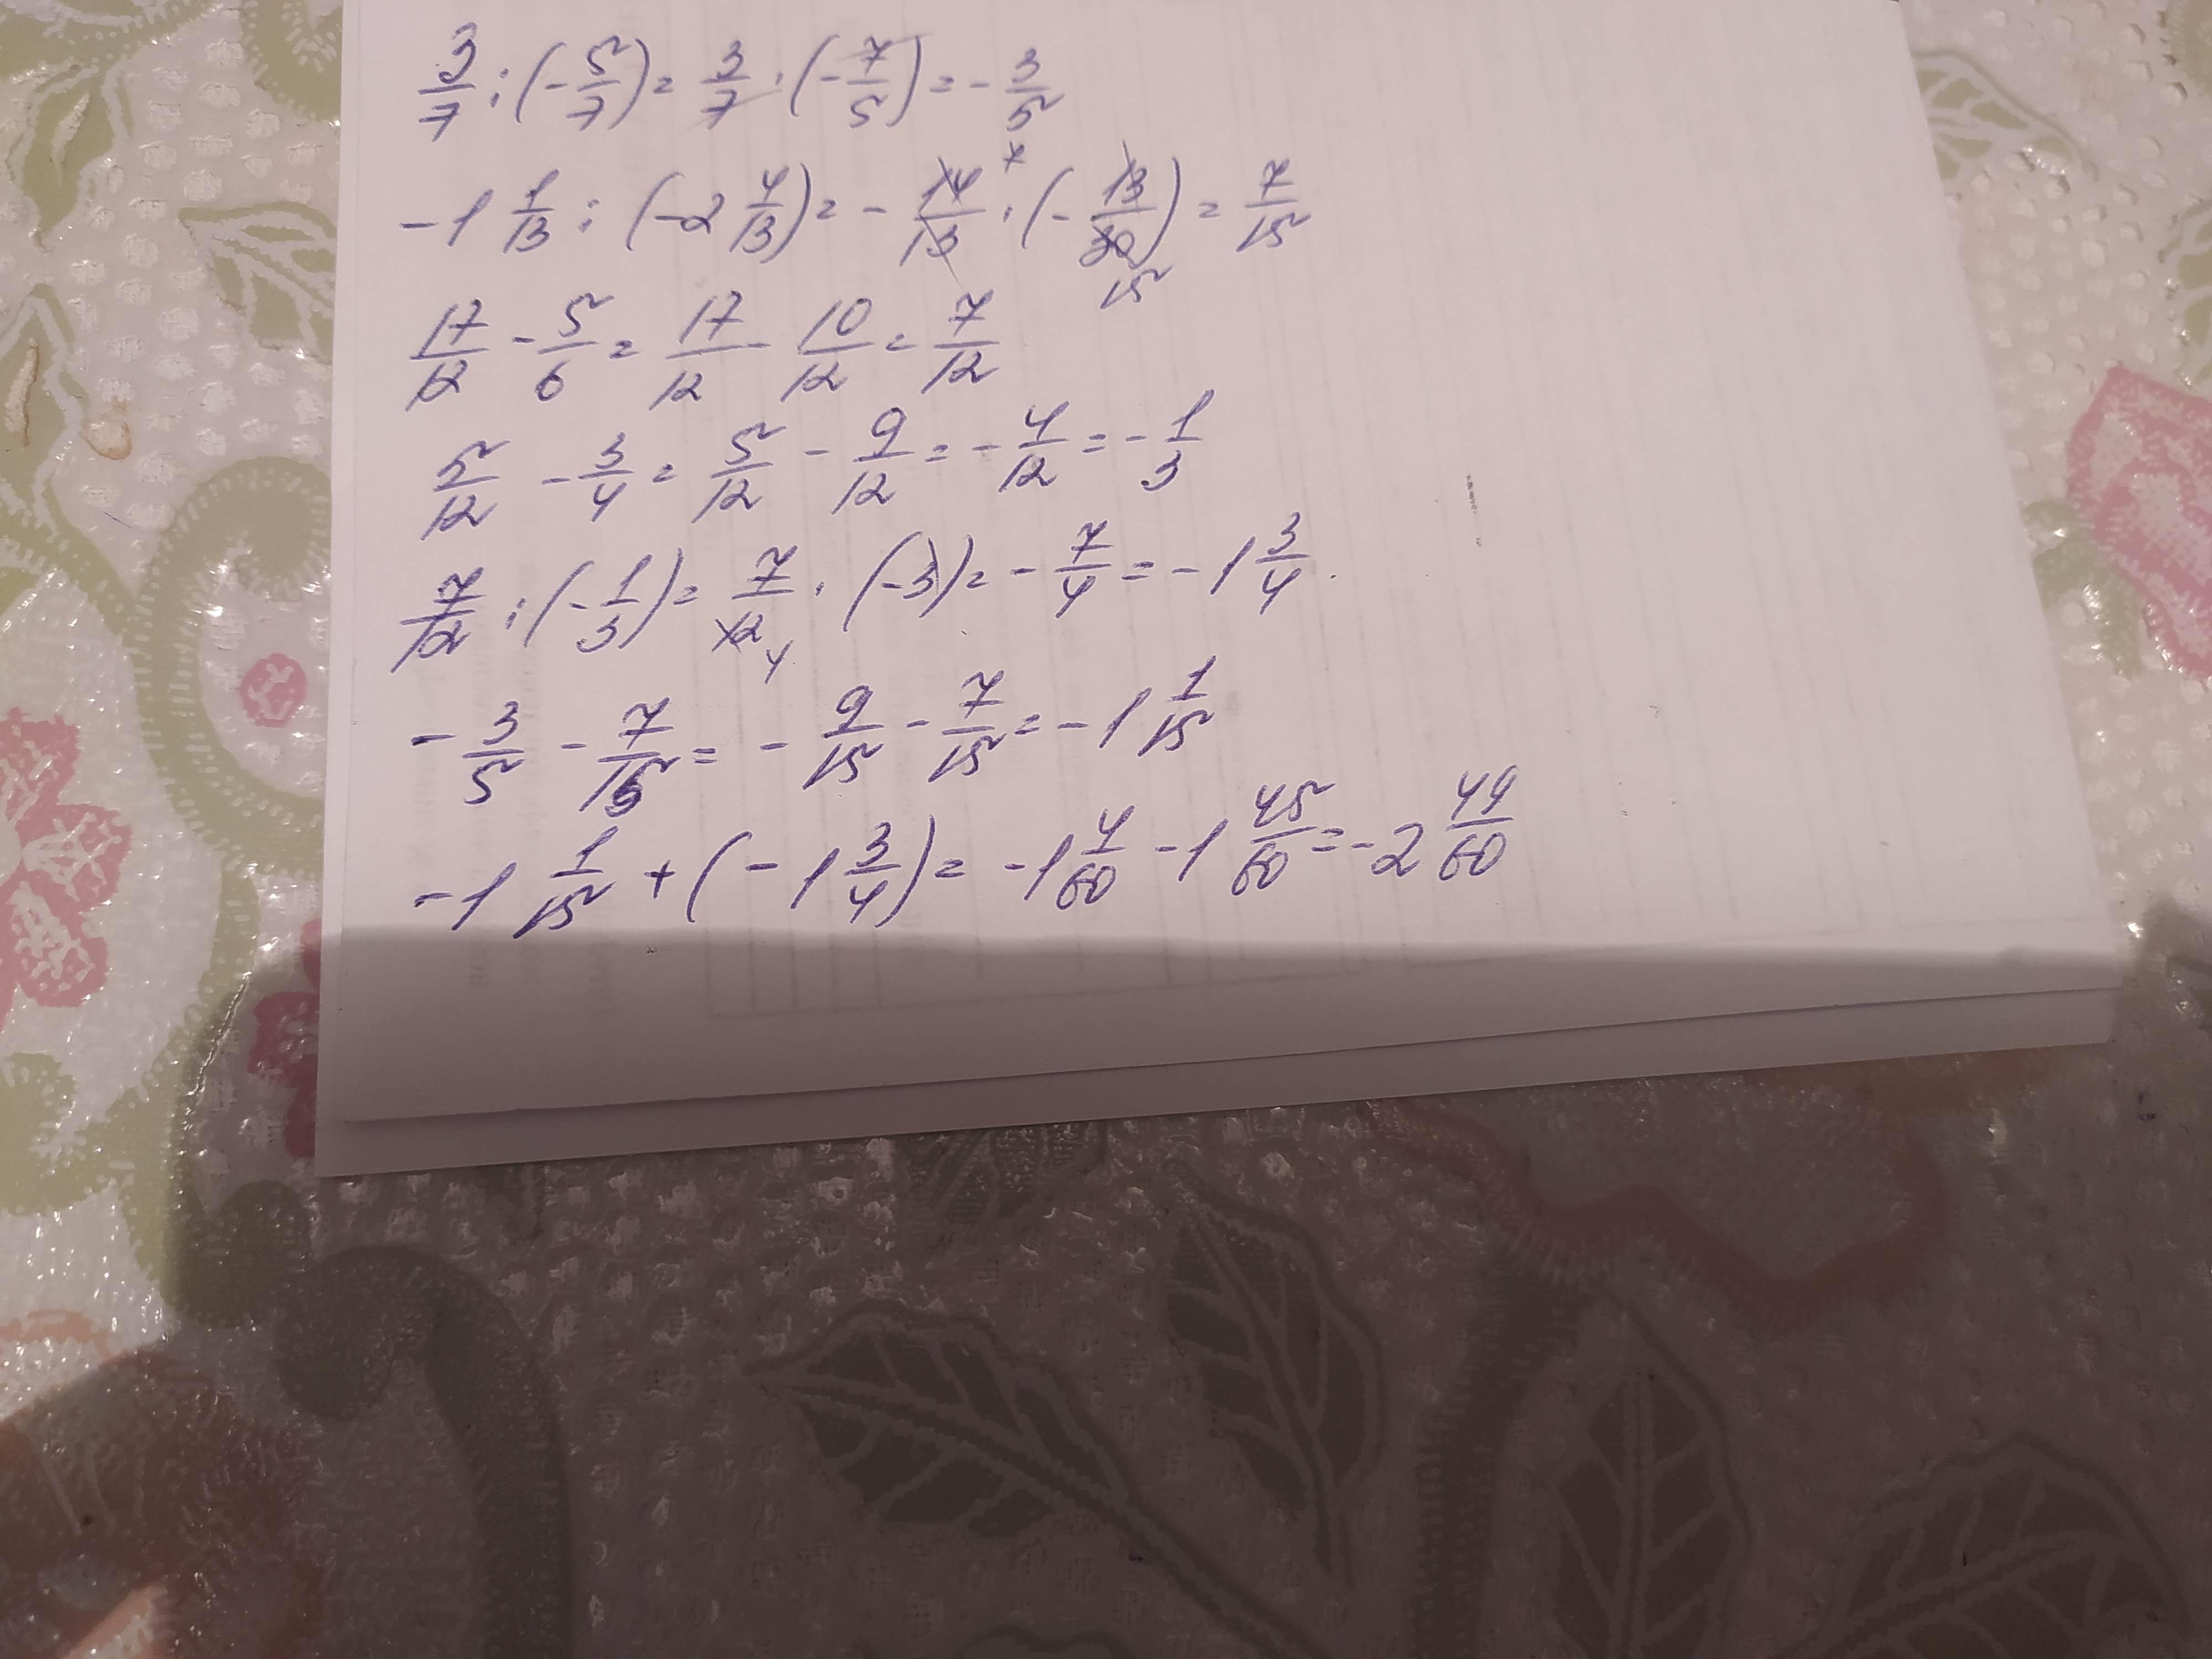 3/7 : (-5/7) = 3/7 · (-7/5) = -3/5
-1 1/13 : (-2 4/13) = -14/13 7 · (-13/30 15) = 7/15
17/12 - 5/6 = 17/12 - 10/12 = 7/12
5/12 - 3/4 = 5/12 - 9/12 = -4/12 = -1/3
7/12 : (-1/3) = 7/12 4 · (-3) = -7/4 = -1 3/4.
-3/5 - 7/15 = -9/15 - 7/15 = -1 1/15
-1 1/15 + (-1 3/4) = -1 4/60 - 1 45/60 = -2 49/60